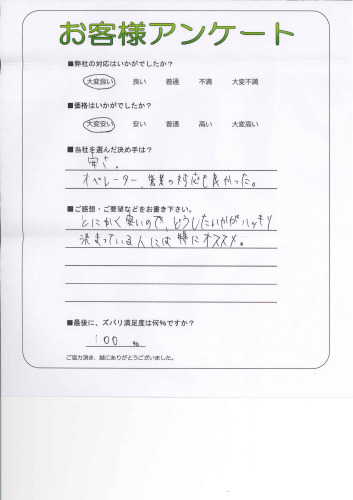 お客様アンケート
■弊社の対応はいかがでしたか?
大変良い 良い 普通 不満 大変不満
■価格はいかがでしたか?
大変安い 安い 普通 高い 大変高い
■当社を選んだ決め手は?
安さ。
オペレーター、営業の対応も良かった。
■ご感想・ご要望などをお書き下さい。
とにかく安いので、どうしたいかがハッキリ
決まっている人には特にオススメ。
■最後に、ズバリ満足度は何%ですか?
100 %
ご協力頂き、誠にありがとうございました。